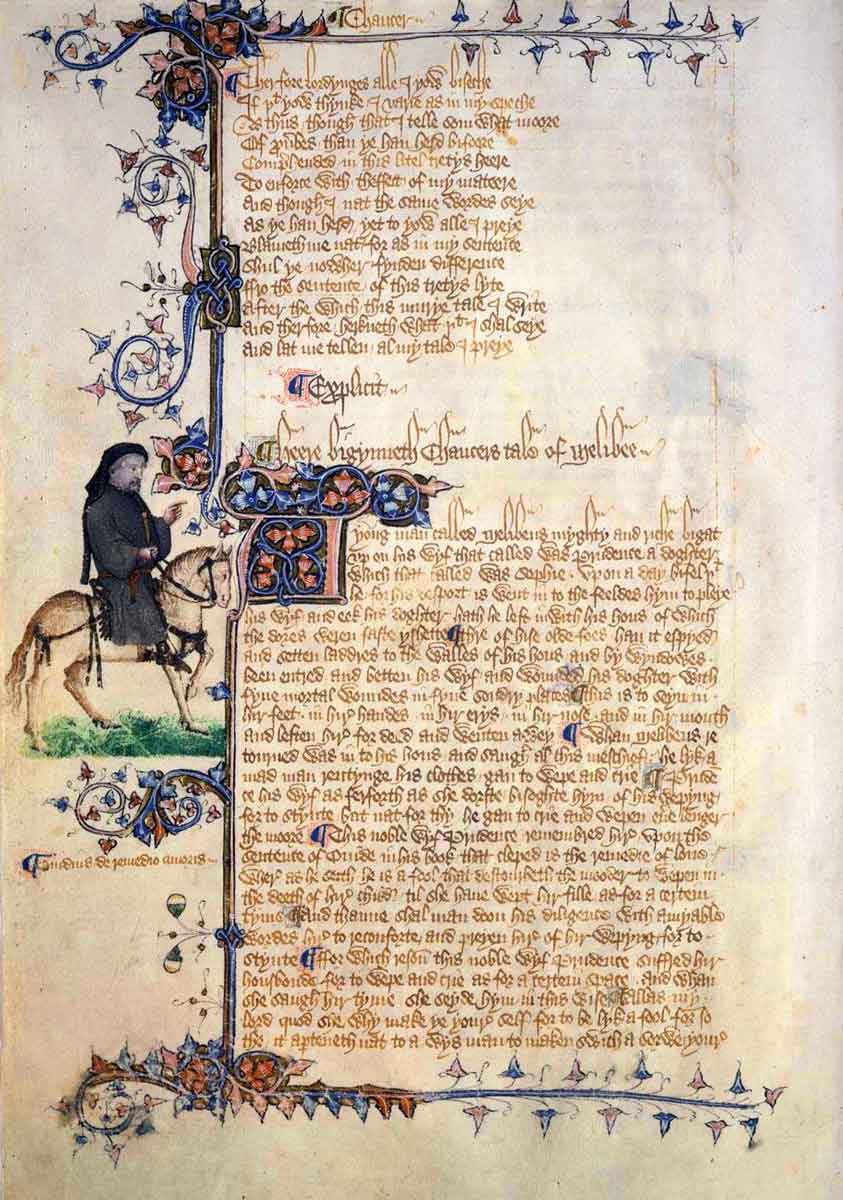 Chaucer
Therfore lordynges alle I yow biseche
If þt yow thynke I varie as in my speche
As thus though that I telle som what moore
Of prouerbes than ye han herd bifoore
Comprehended in this litel tretys heere
To enforce with theffect of my mateere
And though I nat the same wordes seye
As ye han herd yet to yow alle I preye
Blameth me nat for as in my sentence
Shul ye nowher fynden difference
ffro the sentence of this tretys lyte
After the which this murye tale I write
And therfore herkneth what þt I shal seye
And lat me tellen al my tale I preye
Explicit
Heere bigynneth Chaucers tale of Melibee
A yong man called Melibeus myghty and riche bigat
vp on his wyf that called was Prudence a doghter
which that called was Sophie. vpon a day bifel þt
he for his desport is went in to the feeldes hym to pleye
his wyf and eek his doghter hath he left in with his hous of which
the dores weren faste yshette Thre of hise olde foes han it espyed
and setten laddres to the walles of his hous and by wyndowes
been entred and betten his wyf and wounded his doghter with
fyue mortal woundes in fyue sondry places This is to seyn in
hir feet. in hir handes. in hir erys. in hir nose. and in hir mouth
and leften hir for deed and wenten awey Whan Melibeus re
tourned was in to his hous and saugh al this meschief. he lyk a
mad man rentynge his clothes gan to wepe and crie Pruden
ce his wyf as ferforth as she dorste bisoghte hym of his wepyng
for to stynte but nat for thy he gan to crie and wepen euere lenger
the moore This noble wyf Prudence remembred hir vpon the
sentence of Ouide in his book that cleped is the remedie of loue
wher as he seith he is a fool that destourbeth the mooder to wepen in
the deeth of hir child. til she haue wept hir fille as for a certein
tyme and thanne shal man doon his diligence with amyable
wordes hir to reconforte and preyen hir of hir wepyng for to
stynte ffor which reson this noble wyf Prudence suffred hir
housbonde for to wepe and crie as for a certein space. and whan
she saugh hir tyme she seyde hym in this wise Allas my
lord quod she why make ye your self for to be lyk a fool for so
the it aperteneth nat to a wys man to maken swich a sorwe your
Ouidius de remedio amoris